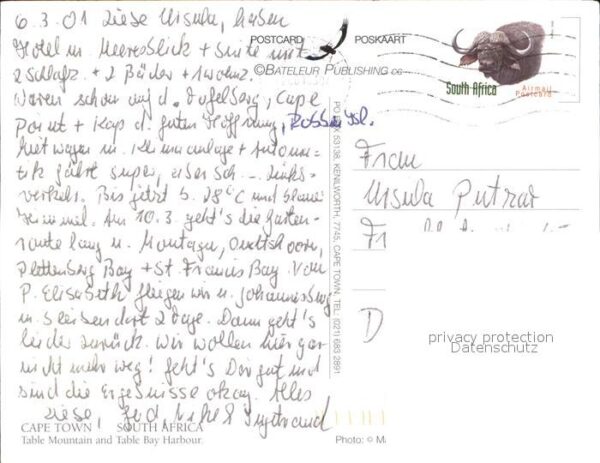 6.3.01 Liebe Ursula, haben
Hotel m. Meeresblick + Suite mit
2 Schlafz. + 2 Bäder + 1 Wohnz.
Waren schon auf d. Tafelberg, Cape
Point + Kap d. guten Hoffnung, Robben Isl.
Mietwagen m. Klimaanlage + Automa-
tik fährt super, aber ... Links-
verkehr. Bis jetzt 28°C und blauer
Himmel. Am 10.3. geht's die Garten-
route lang n. Montagu, Oudtshoorn,
Plettenberg Bay + St. Francis Bay. Von
P. Elisabeth fliegen wir n. Johannesburg
u. bleiben dort 2 Tage. Dann geht's
leider zurück. Wir wollen hier gar
nicht mehr weg! Geht's Dir gut und
sind die Ergebnisse okay. Alles
Liebe,
CAPE TOWN SOUTH AFRICA
Table Mountain and Table Bay Harbour.
POSTCARD POSKAART
©BATELEUR PUBLISHING CC
PO BOX 53136, KENILWORTH, 7745, CAPE TOWN, TEL. (021) 683 2891
South Africa
Airmail
Postcard
Frau
Ursula
D
privacy protection
Datenschutz
Photo: © M